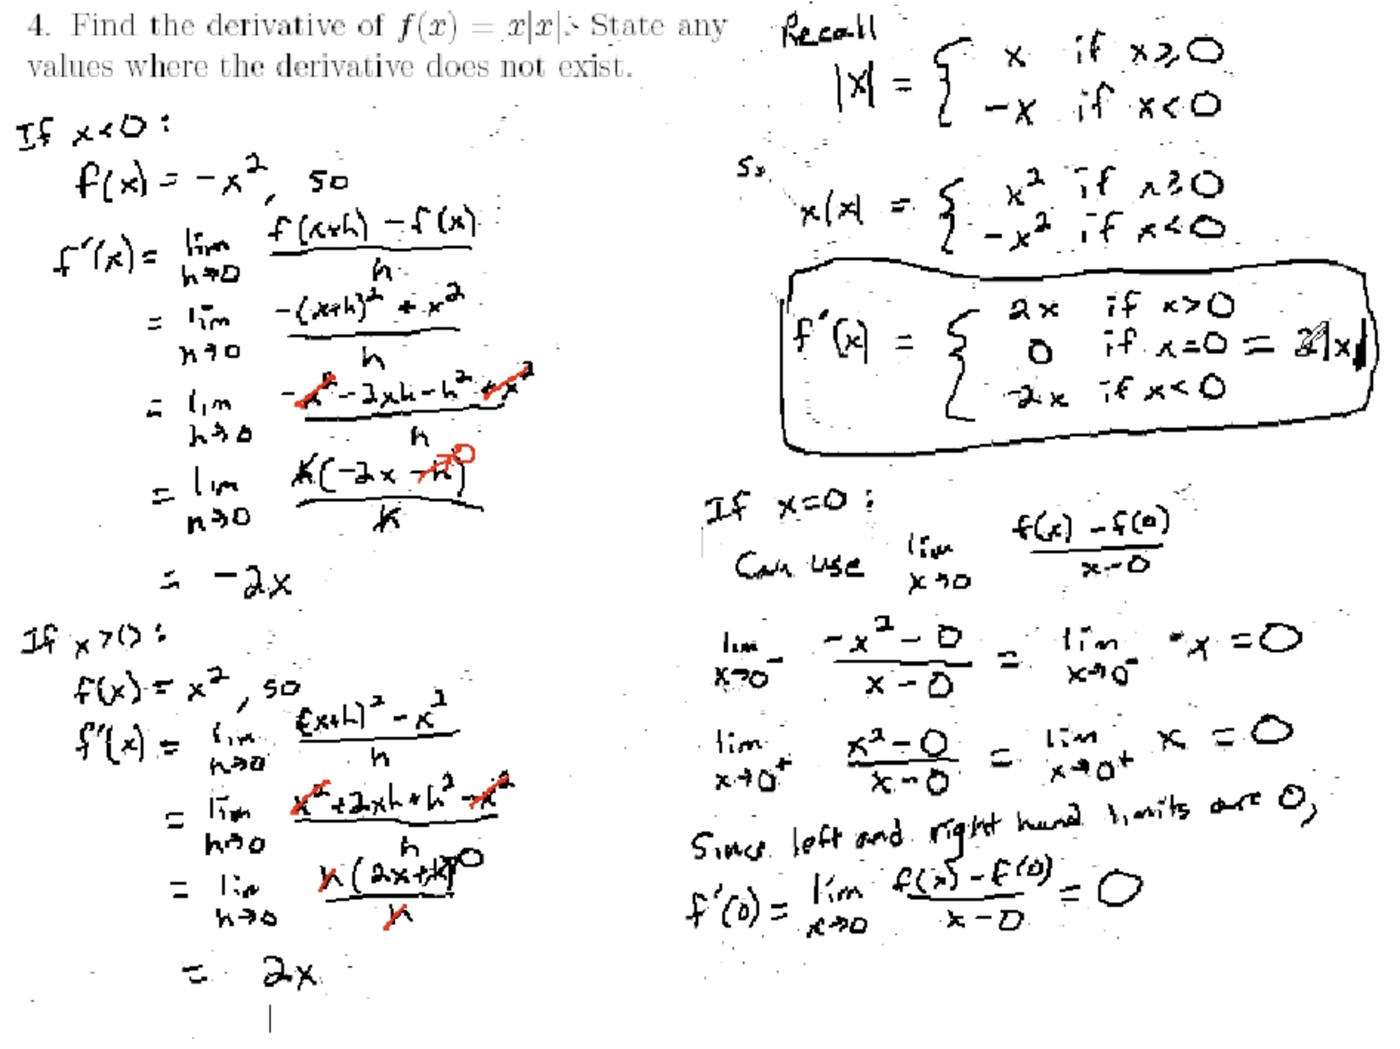 4. Find the derivative of f(x) = x|x|. State any
values where the derivative does not exist.
If x<0:
f(x) = -x², so
f'(x) = lim h→0 (f(x+h) - f(x))/h
= lim h→0 (-(x+h)² + x²)/h
= lim h→0 (-x² - 2xh - h² + x²)/h
= lim h→0 h(-2x - h)/h → 0
= -2x
If x>0:
f(x) = x², so
f'(x) = lim h→0 ((x+h)² - x²)/h
= lim h→0 (x² + 2xh + h² - x²)/h
= lim h→0 h(2x+h)/h → 0
= 2x
Recall
|x| = { x if x≥0
-x if x<0
So
x|x| = { x² if x≥0
-x² if x<0
f'(x) = { 2x if x>0
0 if x=0 = 2|x|
-2x if x<0
If x=0:
Can use lim x→0 (f(x) - f(0))/(x-0)
lim x→0⁻ (-x² - 0)/(x - 0) = lim x→0⁻ -x = 0
lim x→0⁺ (x² - 0)/(x - 0) = lim x→0⁺ x = 0
Since left and right hand limits are 0,
f'(0) = lim x→0 (f(x) - f(0))/(x-0) = 0